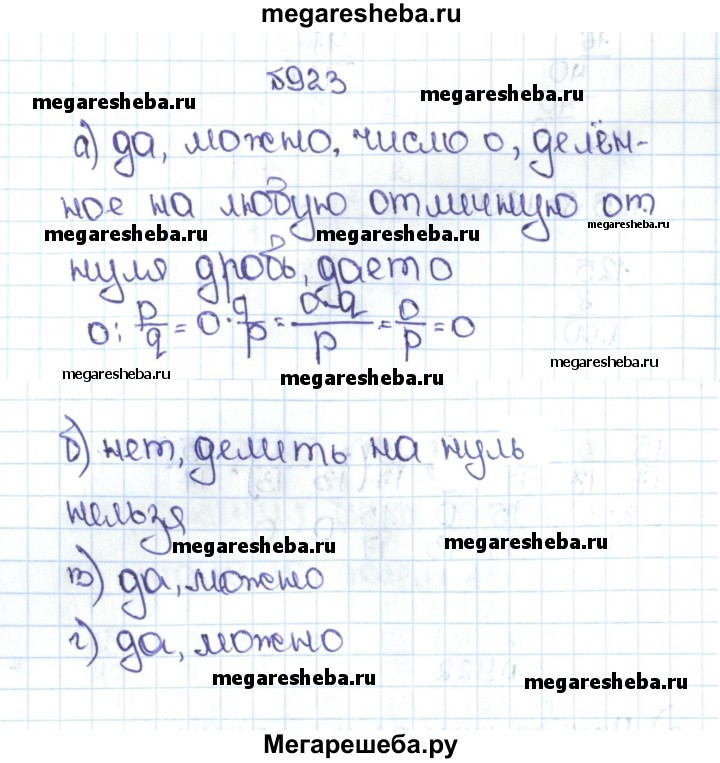 megaresheba.ru
№923
megaresheba.ru megaresheba.ru
а) да, можно, число 0, делён-
ное на любую отличную от
megaresheba.ru megaresheba.ru megaresheba.ru
нуля дробь, дает 0
0 : p/q = 0 · q/p = 0·q/p = 0/p = 0
megaresheba.ru megaresheba.ru megaresheba.ru
б) нет, делить на нуль
нельзя
megaresheba.ru megaresheba.ru
в) да, можно
г) да, можно
megaresheba.ru megaresheba.ru
Мегарешеба.ру